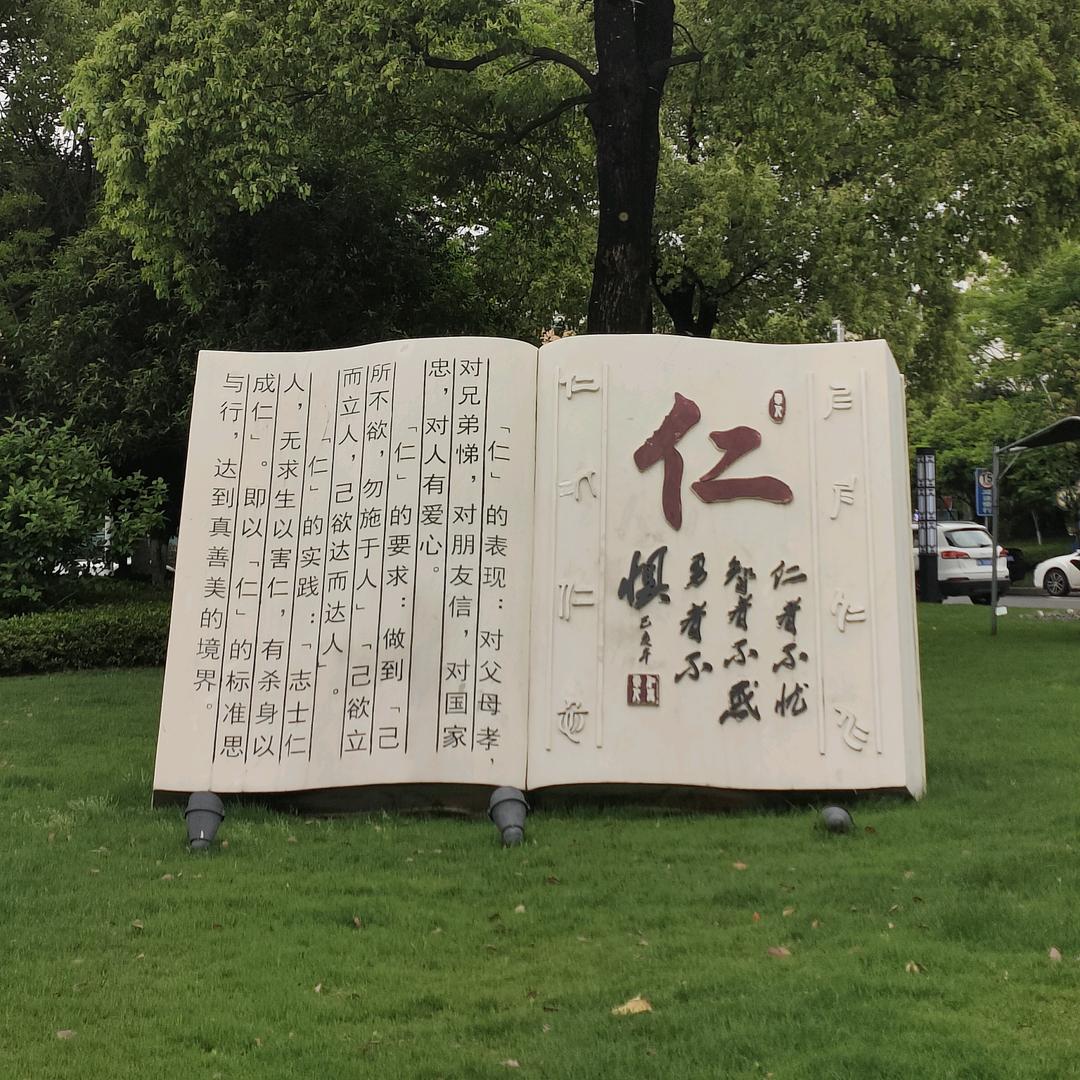 仁
仁者不忧
智者不惑
勇者不
惧
己亥年
「仁」的表现：对父母孝，
对兄弟悌，对朋友信，对国家
忠，对人有爱心。
「仁」的要求：做到「己
所不欲，勿施于人」「己欲立
而立人，己欲达而达人」。
「仁」的实践：「志士仁
人，无求生以害仁，有杀身以
成仁」。即以「仁」的标准思
与行，达到真善美的境界。
15